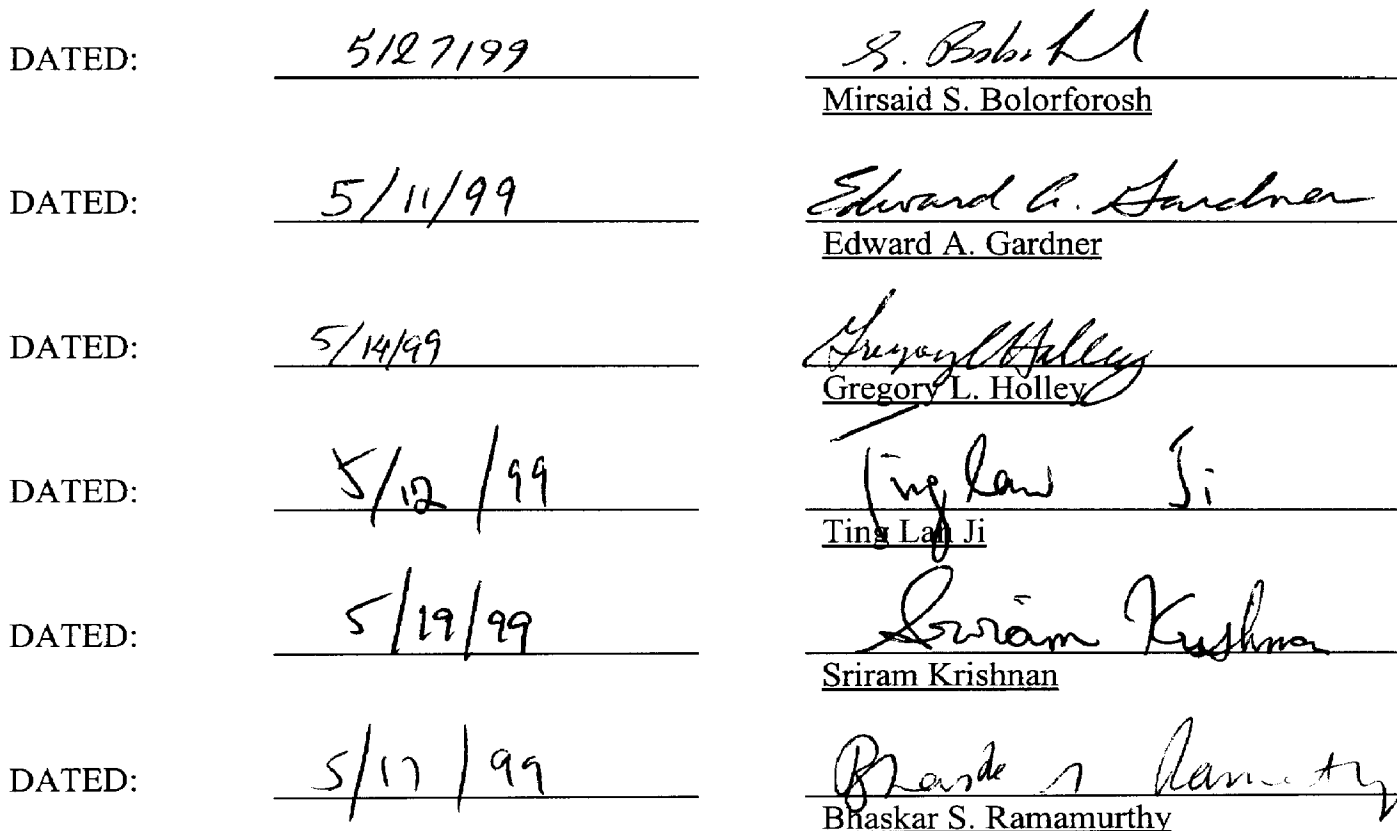 DATED: 5/27/99 S. Bolorforosh
Mirsaid S. Bolorforosh
DATED: 5/11/99 Edward A. Gardner
Edward A. Gardner
DATED: 5/14/99 Gregory L Holley
Gregory L. Holley
DATED: 5/12/99 Ting Lan Ji
Ting Lan Ji
DATED: 5/19/99 Sriram Krishnan
Sriram Krishnan
DATED: 5/17/99 Bhaskar S Ramamurthy
Bhaskar S. Ramamurthy